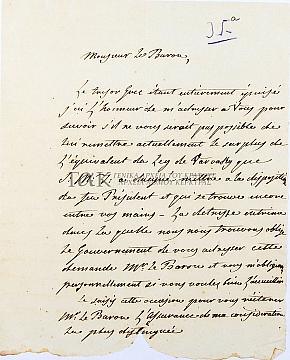 35a
Monsieur le Baron,
Le trésor Grec étant entièrement épuisé
j'ai l'honneur de m'adresser à Vous pour
savoir s'il ne vous serait pas possible de
lui remettre actuellement le surplus de
l'équivalent du Leg de Varvaky que
ΓΕΝΙΚΑ ΑΡΧΕΙΑ ΤΟΥ ΚΡΑΤΟΥΣ
ΑΡΧΕΙΑ ΝΟΜΟΥ ΚΕΡΚΥΡΑΣ
à la disposition
du feu Président et qui se trouve encore
entre vos mains — La détresse extrême
dans laquelle nous nous trouvons oblige
le Gouvernement de vous adresser cette
demande Mr. le Baron et
personnellement de vous
Je saisis cette occasion pour vous réitérer
Mr. le Baron l'assurance de ma considération
la plus distinguée